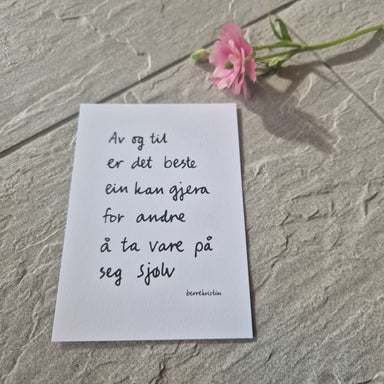 Av og til
er det beste
ein kan gjera
for andre
å ta vare på
seg sjølv
berrekristin